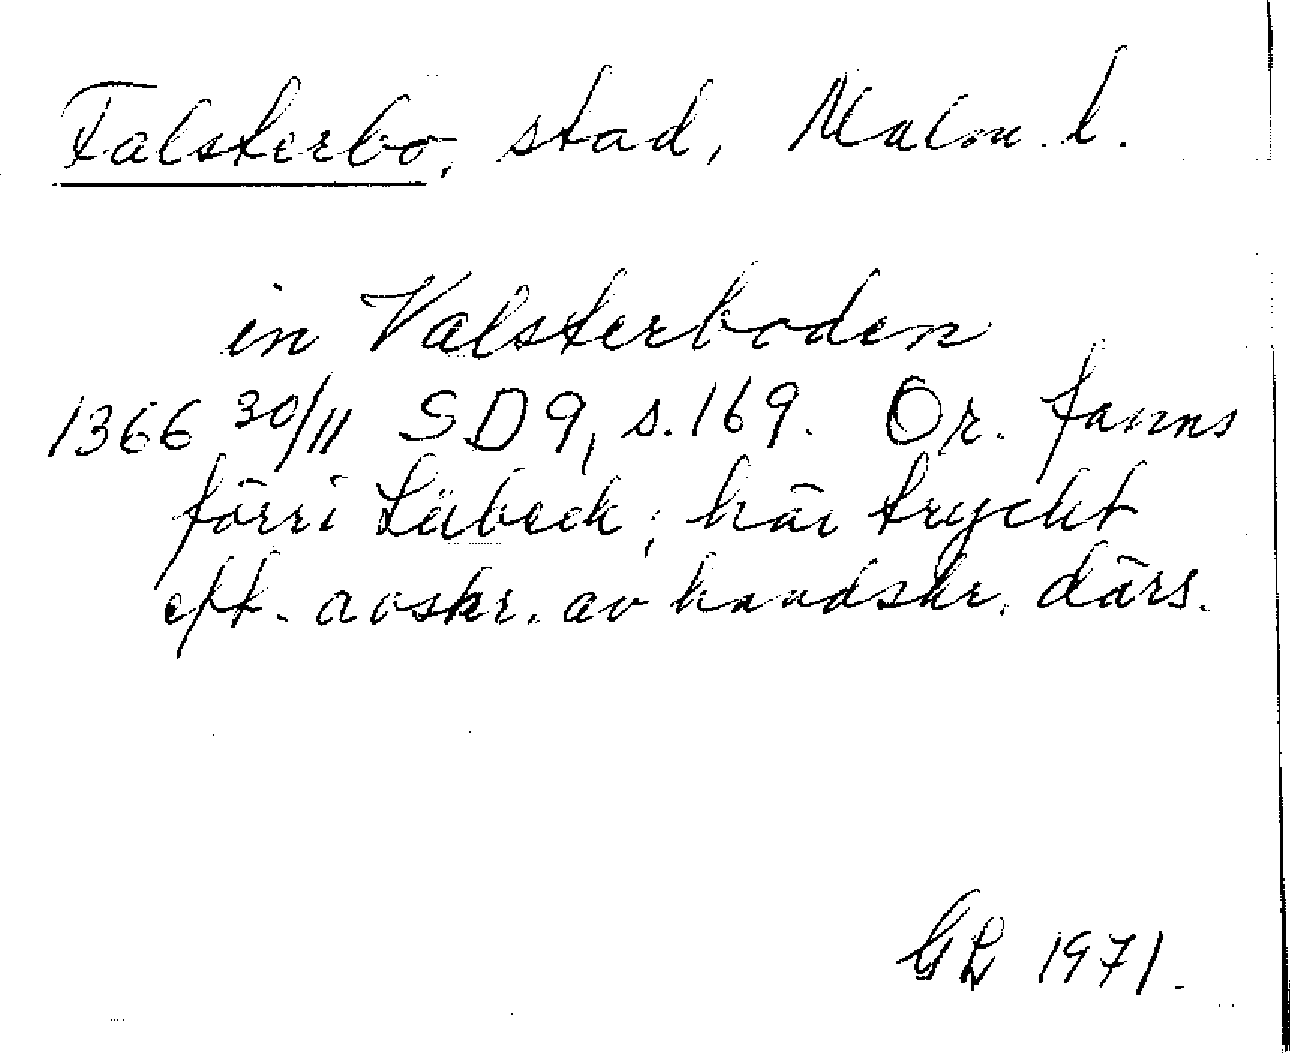 Falsterbo, stad, Malm. l.
in Valsterboden
1366 30/11 SD 9, s. 169. Or. fanns
förr i Lübeck; här tryckt
eft. avskr. av handskr. därs.
GL 1971.